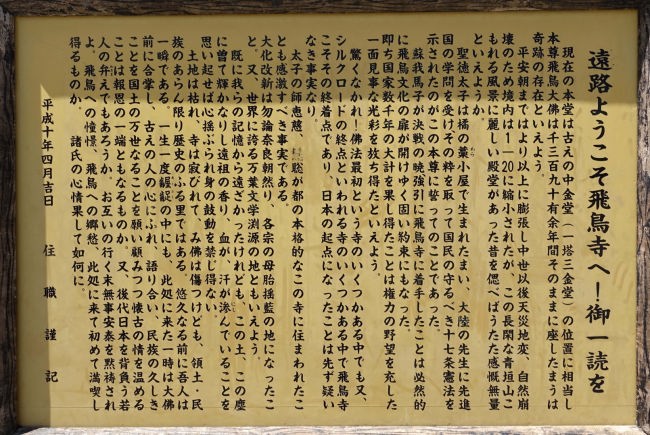 遠路ようこそ飛鳥寺へ!御一読を
現在の本堂は古えの中金堂(一塔三金堂)の位置に相当し
本尊飛鳥大佛は千三百九十有余年間そのままに座したまうは
奇跡の存在といえよう。
平安朝まではより以上に膨張し中世以後天災地変、自然崩
壊のため境内は1-20に縮小されたが、この長閑な青垣山こ
もれる風景に麗しい殿堂があった昔を偲べばうたた感慨無量
といえようか。
聖徳太子は橘の藁小屋で生まれたまい、大陸の先生に先進
国の学問を受けその粋を取って国民の守るべき十七条憲法を
示されたのがこの本尊に誓ってのことであった。
蘇我馬子が決戦の暁強引に飛鳥寺に着手したことは必然的
に飛鳥文化の扉が開けゆく固い約束にもなった。
即ち国家数千年の大計を果し得たことは権力の野望を充した
一面見事な光彩を放ち得たといえよう。
驚くなかれ!佛法最初という寺のいくつかある中でも又、
シルクロードの終点といわれる寺のいくつかある中で飛鳥寺
こそその終着点であり、日本の起点になったことは先ず疑い
なき事実なり。
太子の師恵慈、聡が都の本格的なこの寺に住まわれたこ
とも感激すべき事実である。
と。又、世界に誇る万葉文学渕源の地ともいえよう。
大化改新は勿論奈良朝然り、各宗の母胎揺藍の地になったこ
既に我らの記憶から遠ざかったけれども、この土、この塵
に曽て輝かなりし遠祖の香り、血が、汗が滲んでいることを
思い起せば心揺ぶられ身の鼓動を禁じ得ない。
土地は枯れ、寺は寂びれて、み佛は傷つけども、領土・民
族のあらん限り歴史のふる里ではある。悠久なる前に吾人は
一瞬である。一生一度齷齪の中にも、此処に来た一時は大佛
前に合掌し、古えの人の心にふれ、語り合い、民族の久しき
ことを国土の万世なることを願い顧みつつ懐古の情を温める
ことは報恩の一端ともなるものか。又、後代日本を背負う若
人の弁えでもあろうか。お互いの行く末無事安泰を黙祷され
よ、飛鳥への憧憬、飛鳥への郷愁、此処に来て初めて満喫し
得るものか。諸氏の心情果して如何に。
平成十年四月吉日 住職謹記